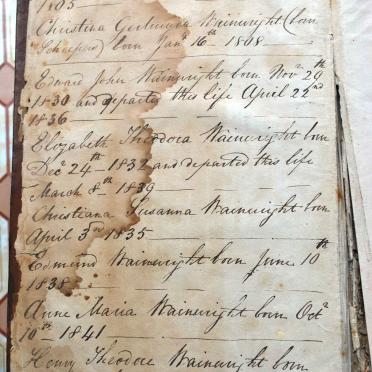 1805
Christina Gertruida Wainwright (born
born Jany 16th 1808
Edward John Wainwright born Novr 29th
1830 and departed this life April 22nd
1836
Elizabeth Theodora Wainwright born
Decr 24th 1832 and departed this life
March 8th 1839
Christiana Susanna Wainwright born
April 3rd 1835
Edmund Wainwright born June 10th
1838
Anne Maria Wainwright born Octr
10th 1841
Henry Theodore Wainwright born